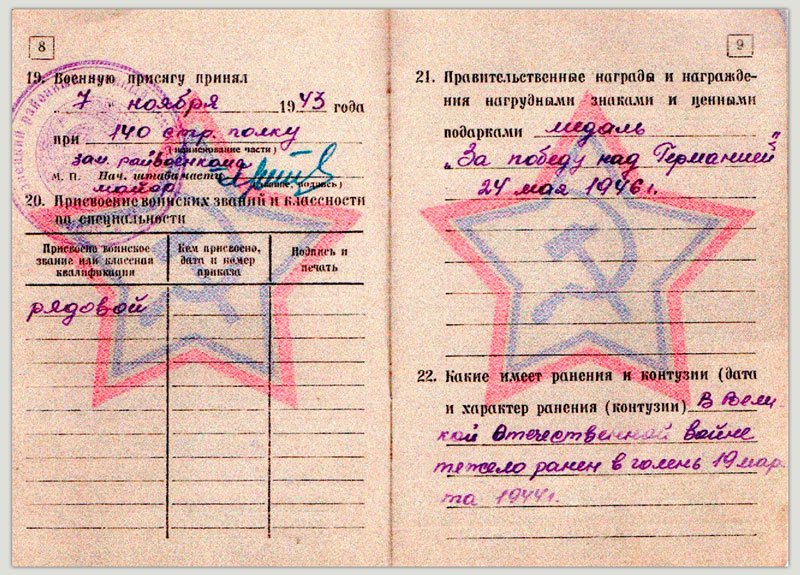 8
19. Военную присягу принял
7 ноября 1943 года
при 140 стр. полку
(наименование части)
зам. райвоенкома
М. П. Нач. штаба части
майор (звание, подпись)
20. Присвоение воинских званий и классности
по специальности
Присвоено воинское звание или классная квалификация
Кем присвоено, дата и номер приказа
Подпись и печать
рядовой
9
21. Правительственные награды и награжде-
ния нагрудными знаками и ценными
подарками медаль
„За победу над Германией"
24 мая 1946 г.
22. Какие имеет ранения и контузии (дата
и характер ранения (контузии) В Вели-
кой Отечественной войне
тяжело ранен в голень 19 мар-
та 1944 г.